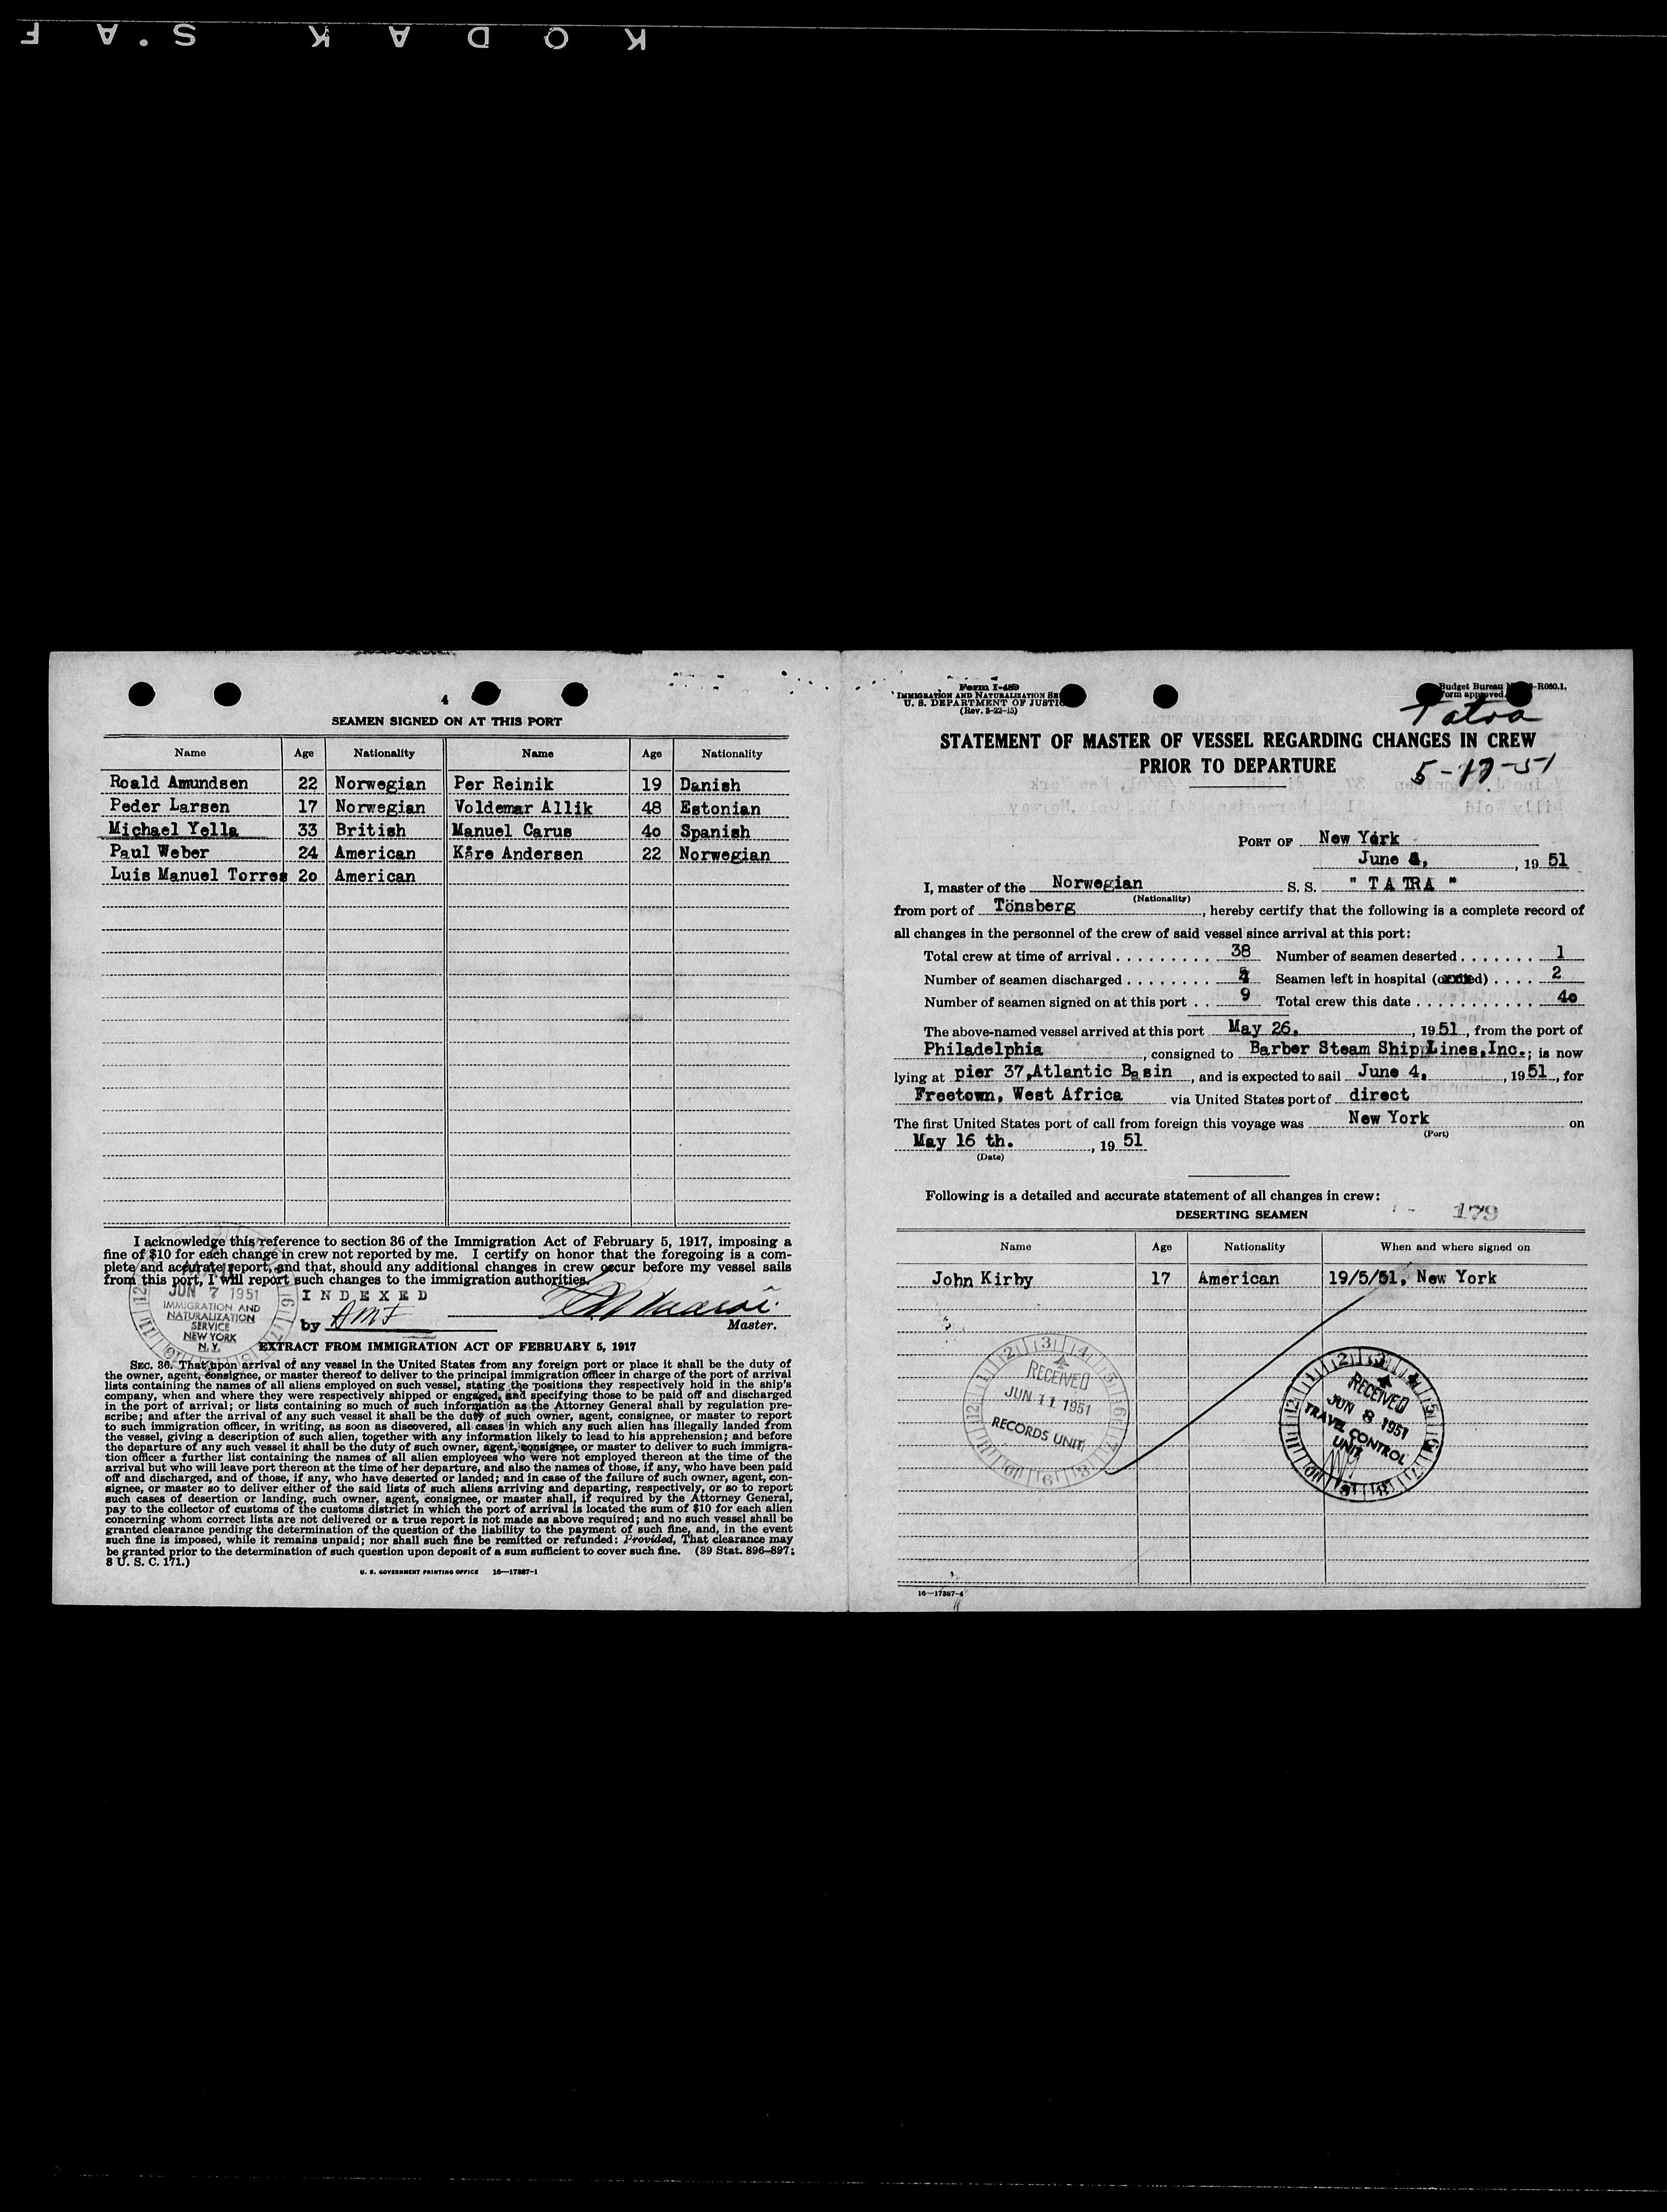 KODAK S.AF
4
SEAMEN SIGNED ON AT THIS PORT
Name Age Nationality Name Age Nationality
Roald Amundsen 22 Norwegian Per Reinik 19 Danish
Peder Larsen 17 Norwegian Voldemar Allik 48 Estonian
Michael Yella 33 British Manuel Carus 4o Spanish
Paul Weber 24 American Kåre Andersen 22 Norwegian
Luis Manuel Torres 2o American
I acknowledge this reference to section 36 of the Immigration Act of February 5, 1917, imposing a
fine of $10 for each change in crew not reported by me. I certify on honor that the foregoing is a com-
plete and accurate report, and that, should any additional changes in crew occur before my vessel sails
from this port, I will report such changes to the immigration authorities.
JUN 7 1951
IMMIGRATION AND
NATURALIZATION
SERVICE
NEW YORK
N.Y.
INDEXED
by AMF
Master.
EXTRACT FROM IMMIGRATION ACT OF FEBRUARY 5, 1917
SEC. 36. That upon arrival of any vessel in the United States from any foreign port or place it shall be the duty of
the owner, agent, consignee, or master thereof to deliver to the principal immigration officer in charge of the port of arrival
lists containing the names of all aliens employed on such vessel, stating the positions they respectively hold in the ship's
company, when and where they were respectively shipped or engaged, and specifying those to be paid off and discharged
in the port of arrival; or lists containing so much of such information as the Attorney General shall by regulation pre-
scribe; and after the arrival of any such vessel it shall be the duty of such owner, agent, consignee, or master to report
to such immigration officer, in writing, as soon as discovered, all cases in which any such alien has illegally landed from
the vessel, giving a description of such alien, together with any information likely to lead to his apprehension; and before
the departure of any such vessel it shall be the duty of such owner, agent, consignee, or master to deliver to such immigra-
tion officer a further list containing the names of all alien employees who were not employed thereon at the time of the
arrival but who will leave port thereon at the time of her departure, and also the names of those, if any, who have been paid
off and discharged, and of those, if any, who have deserted or landed; and in case of the failure of such owner, agent, con-
signee, or master so to deliver either of the said lists of such aliens arriving and departing, respectively, or so to report
such cases of desertion or landing, such owner, agent, consignee, or master shall, if required by the Attorney General,
pay to the collector of customs of the customs district in which the port of arrival is located the sum of $10 for each alien
concerning whom correct lists are not delivered or a true report is not made as above required; and no such vessel shall be
granted clearance pending the determination of the question of the liability to the payment of such fine, and, in the event
such fine is imposed, while it remains unpaid; nor shall such fine be remitted or refunded: Provided, That clearance may
be granted prior to the determination of such question upon deposit of a sum sufficient to cover such fine. (39 Stat. 896-897;
8 U. S. C. 171.)
U. S. GOVERNMENT PRINTING OFFICE 16—17387-1
Form I-489
IMMIGRATION AND NATURALIZATION
U. S. DEPARTMENT OF JUSTIC
(Rev. 3-22-45)
Budget Bureau -R060.1.
Form approved.
Tatra
STATEMENT OF MASTER OF VESSEL REGARDING CHANGES IN CREW
PRIOR TO DEPARTURE
5-17-51
PORT OF New York
June 4, , 19 51
I, master of the Norwegian S. S. " TATRA "
(Nationality)
from port of Tönsberg , hereby certify that the following is a complete record of
all changes in the personnel of the crew of said vessel since arrival at this port:
Total crew at time of arrival . . . . . . . . . 38 Number of seamen deserted . . . . . . . 1
Number of seamen discharged . . . . . . . . 4 Seamen left in hospital . . . . 2
Number of seamen signed on at this port . . 9 Total crew this date . . . . . . . . . . . 4o
The above-named vessel arrived at this port May 26. , 1951 , from the port of
Philadelphia , consigned to Barber Steam Ship Lines,Inc. ; is now
lying at pier 37,Atlantic Basin , and is expected to sail June 4. , 1951 , for
Freetown, West Africa via United States port of direct
The first United States port of call from foreign this voyage was New York on
(Port)
May 16 th. , 19 51
(Date)
Following is a detailed and accurate statement of all changes in crew:
179
DESERTING SEAMEN
Name Age Nationality When and where signed on
John Kirby 17 American 19/5/51, New York
RECEIVED
JUN 11 1951
RECORDS UNIT
RECEIVED
JUN 8 1951
TRAVEL CONTROL
UNIT
16—17387-4